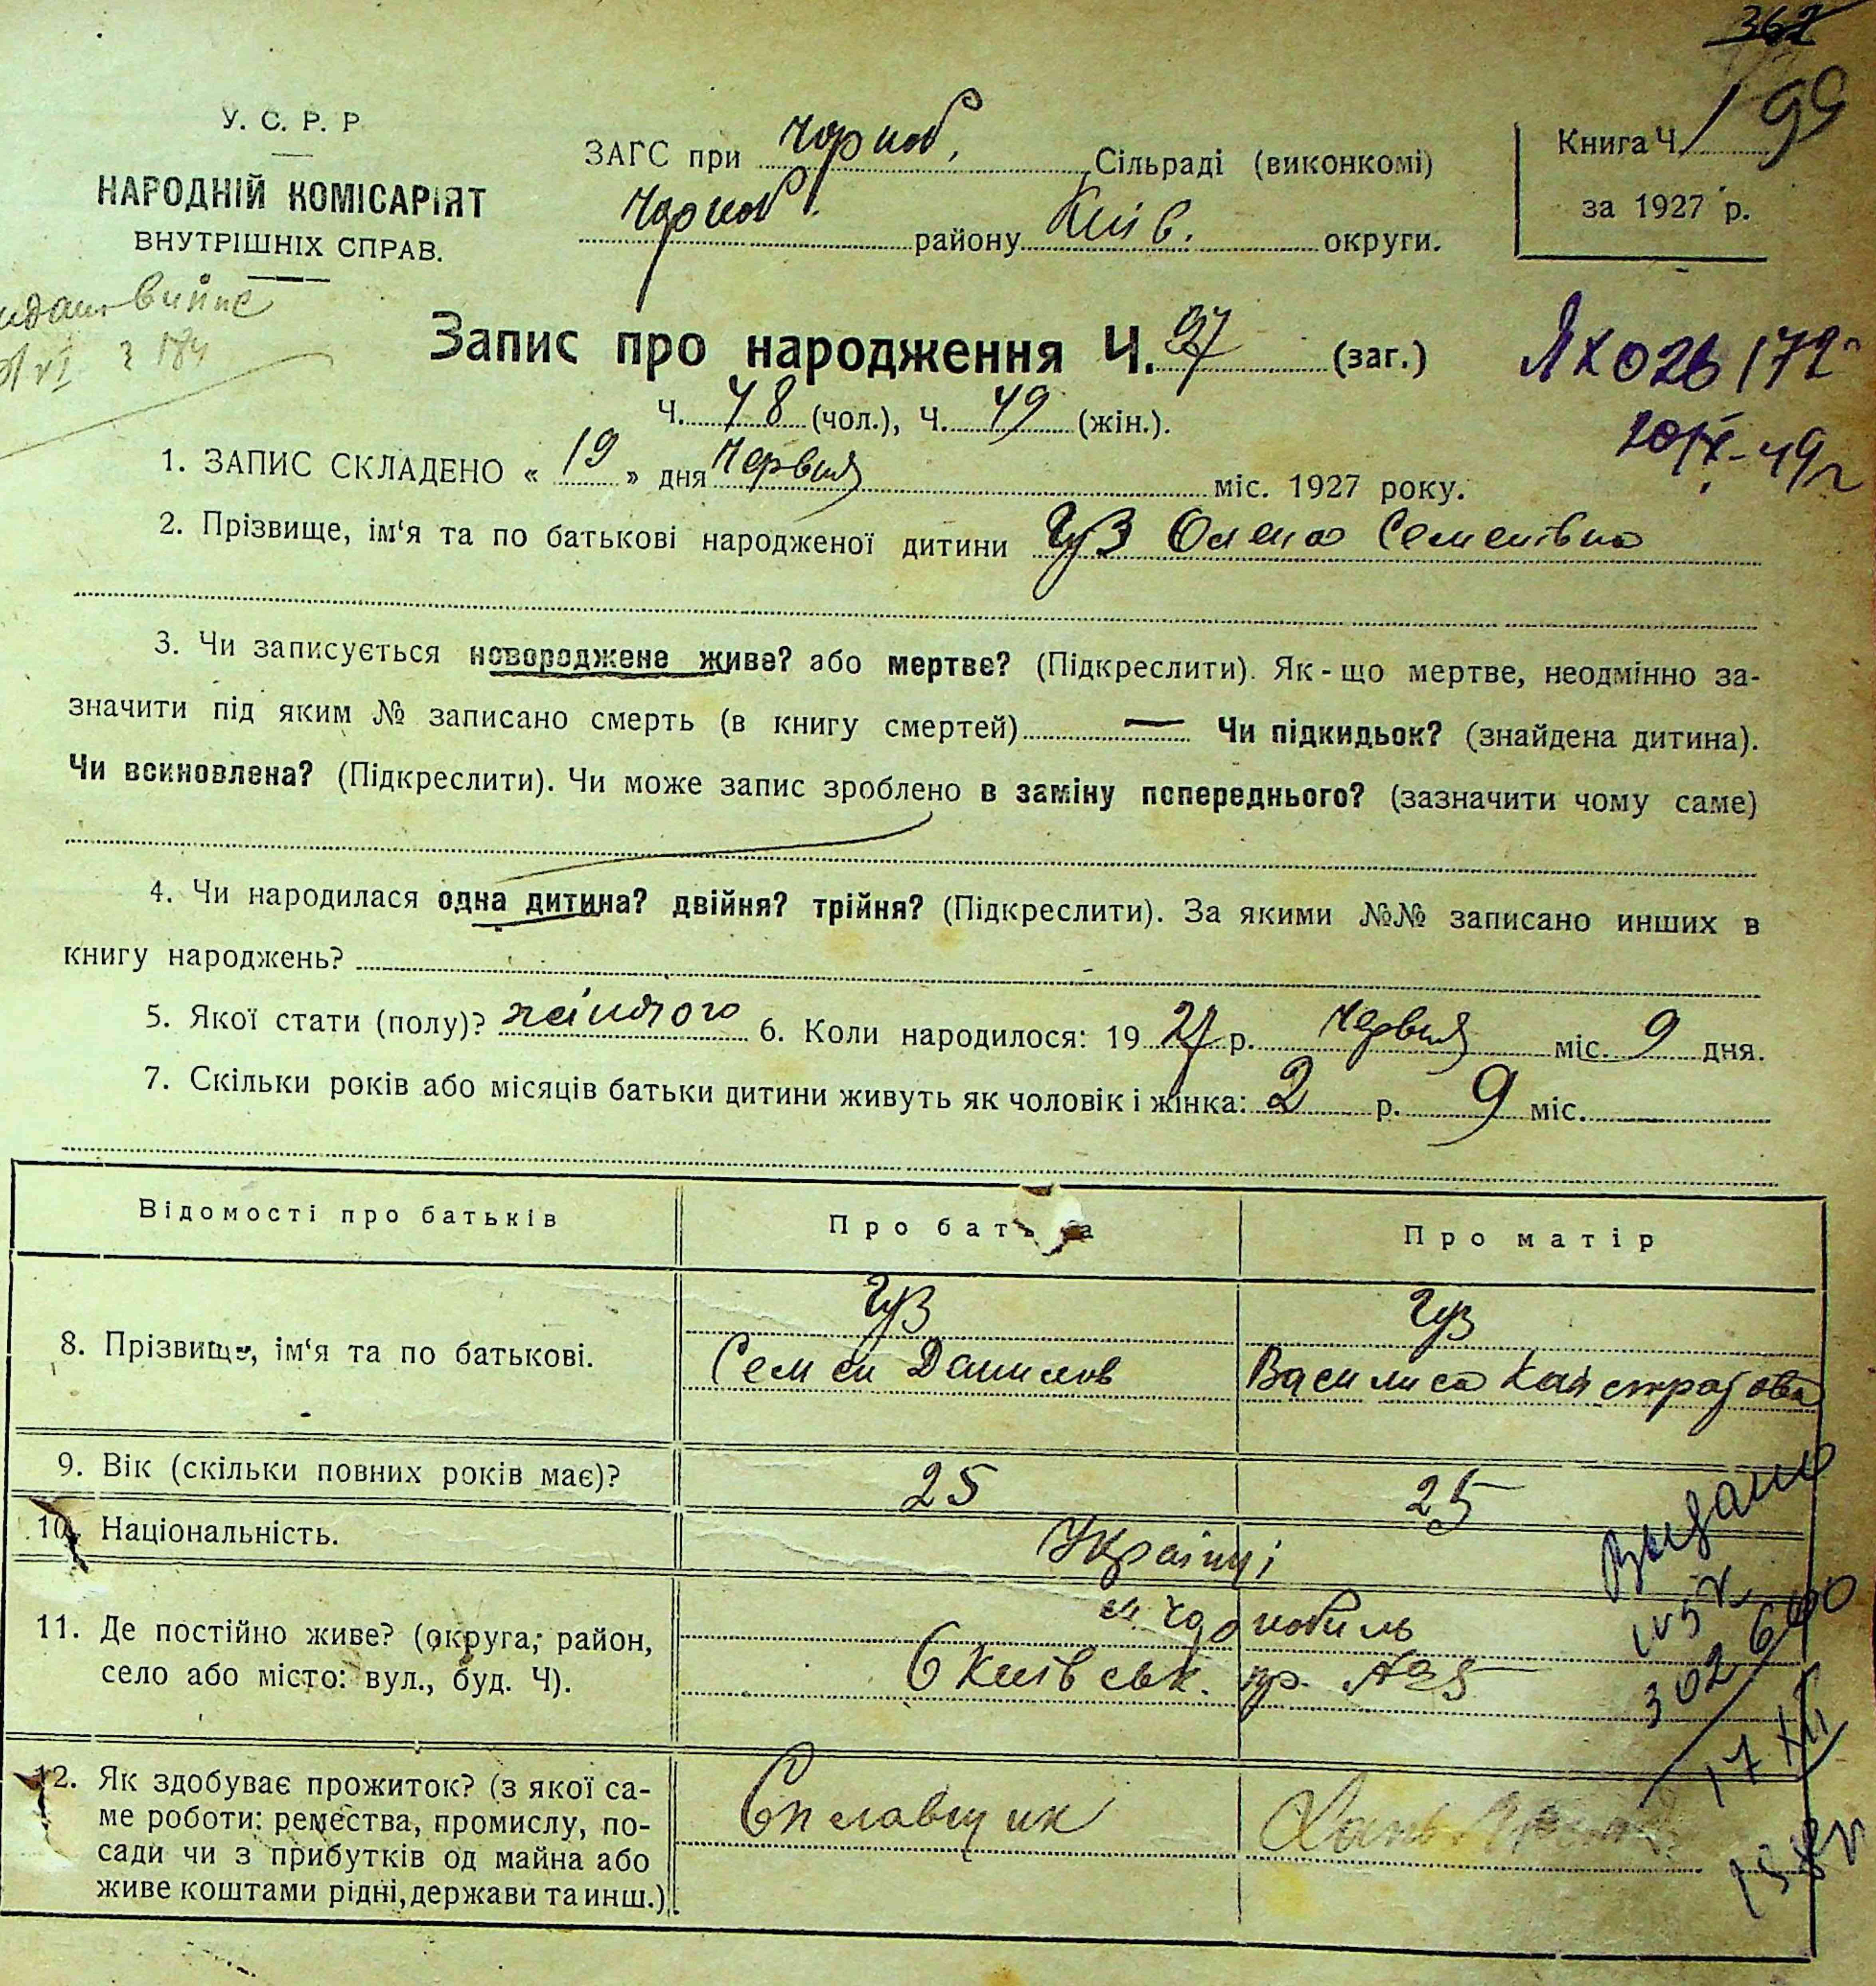 362
199
У. С. Р. Р
НАРОДНІЙ КОМІСАРІЯТ
ВНУТРІШНІХ СПРАВ.
ЗАГС при Чорноб. Сільраді (виконкомі)
Чорноб. району Київ. округи.
Книга Ч.
за 1927 р.
Запис про народження Ч. 97 (заг.)
ЯХ 026172
Ч. 48 (чол.), Ч. 49 (жін.).
20/IX-49 г
1. ЗАПИС СКЛАДЕНО « 19 » дня Червня міс. 1927 року.
2. Прізвище, ім‘я та по батькові народженої дитини Гуз Олена Семенівна
3. Чи записується новороджене живе? або мертве? (Підкреслити). Як-що мертве, неодмінно за-
значити під яким № записано смерть (в книгу смертей) — Чи підкидьок? (знайдена дитина).
Чи всиновлена? (Підкреслити). Чи може запис зроблено в заміну попереднього? (зазначити чому саме)
4. Чи народилася одна дитина? двійня? трійня? (Підкреслити). За якими №№ записано инших в
книгу народжень?
5. Якої стати (полу)? жіночого 6. Коли народилося: 19 27 р. Червня міс. 9 дня.
7. Скільки років або місяців батьки дитини живуть як чоловік і жінка: 2 р. 9 міс.
Відомості про батьків Про батька Про матір
8. Прізвище, ім‘я та по батькові.
Гуз Гуз
Семен Данилов Василиса
9. Вік (скільки повних років має)? 25 25
10. Національність. Українці
11. Де постійно живе? (округа, район,
село або місто: вул., буд. Ч).
м. Чорнобиль
Київськ.
12. Як здобуває прожиток? (з якої са-
ме роботи: ремества, промислу, по-
сади чи з прибутків од майна або
живе коштами рідні, держави та инш.)
Сплавщик
Выдано
302640
17 XII